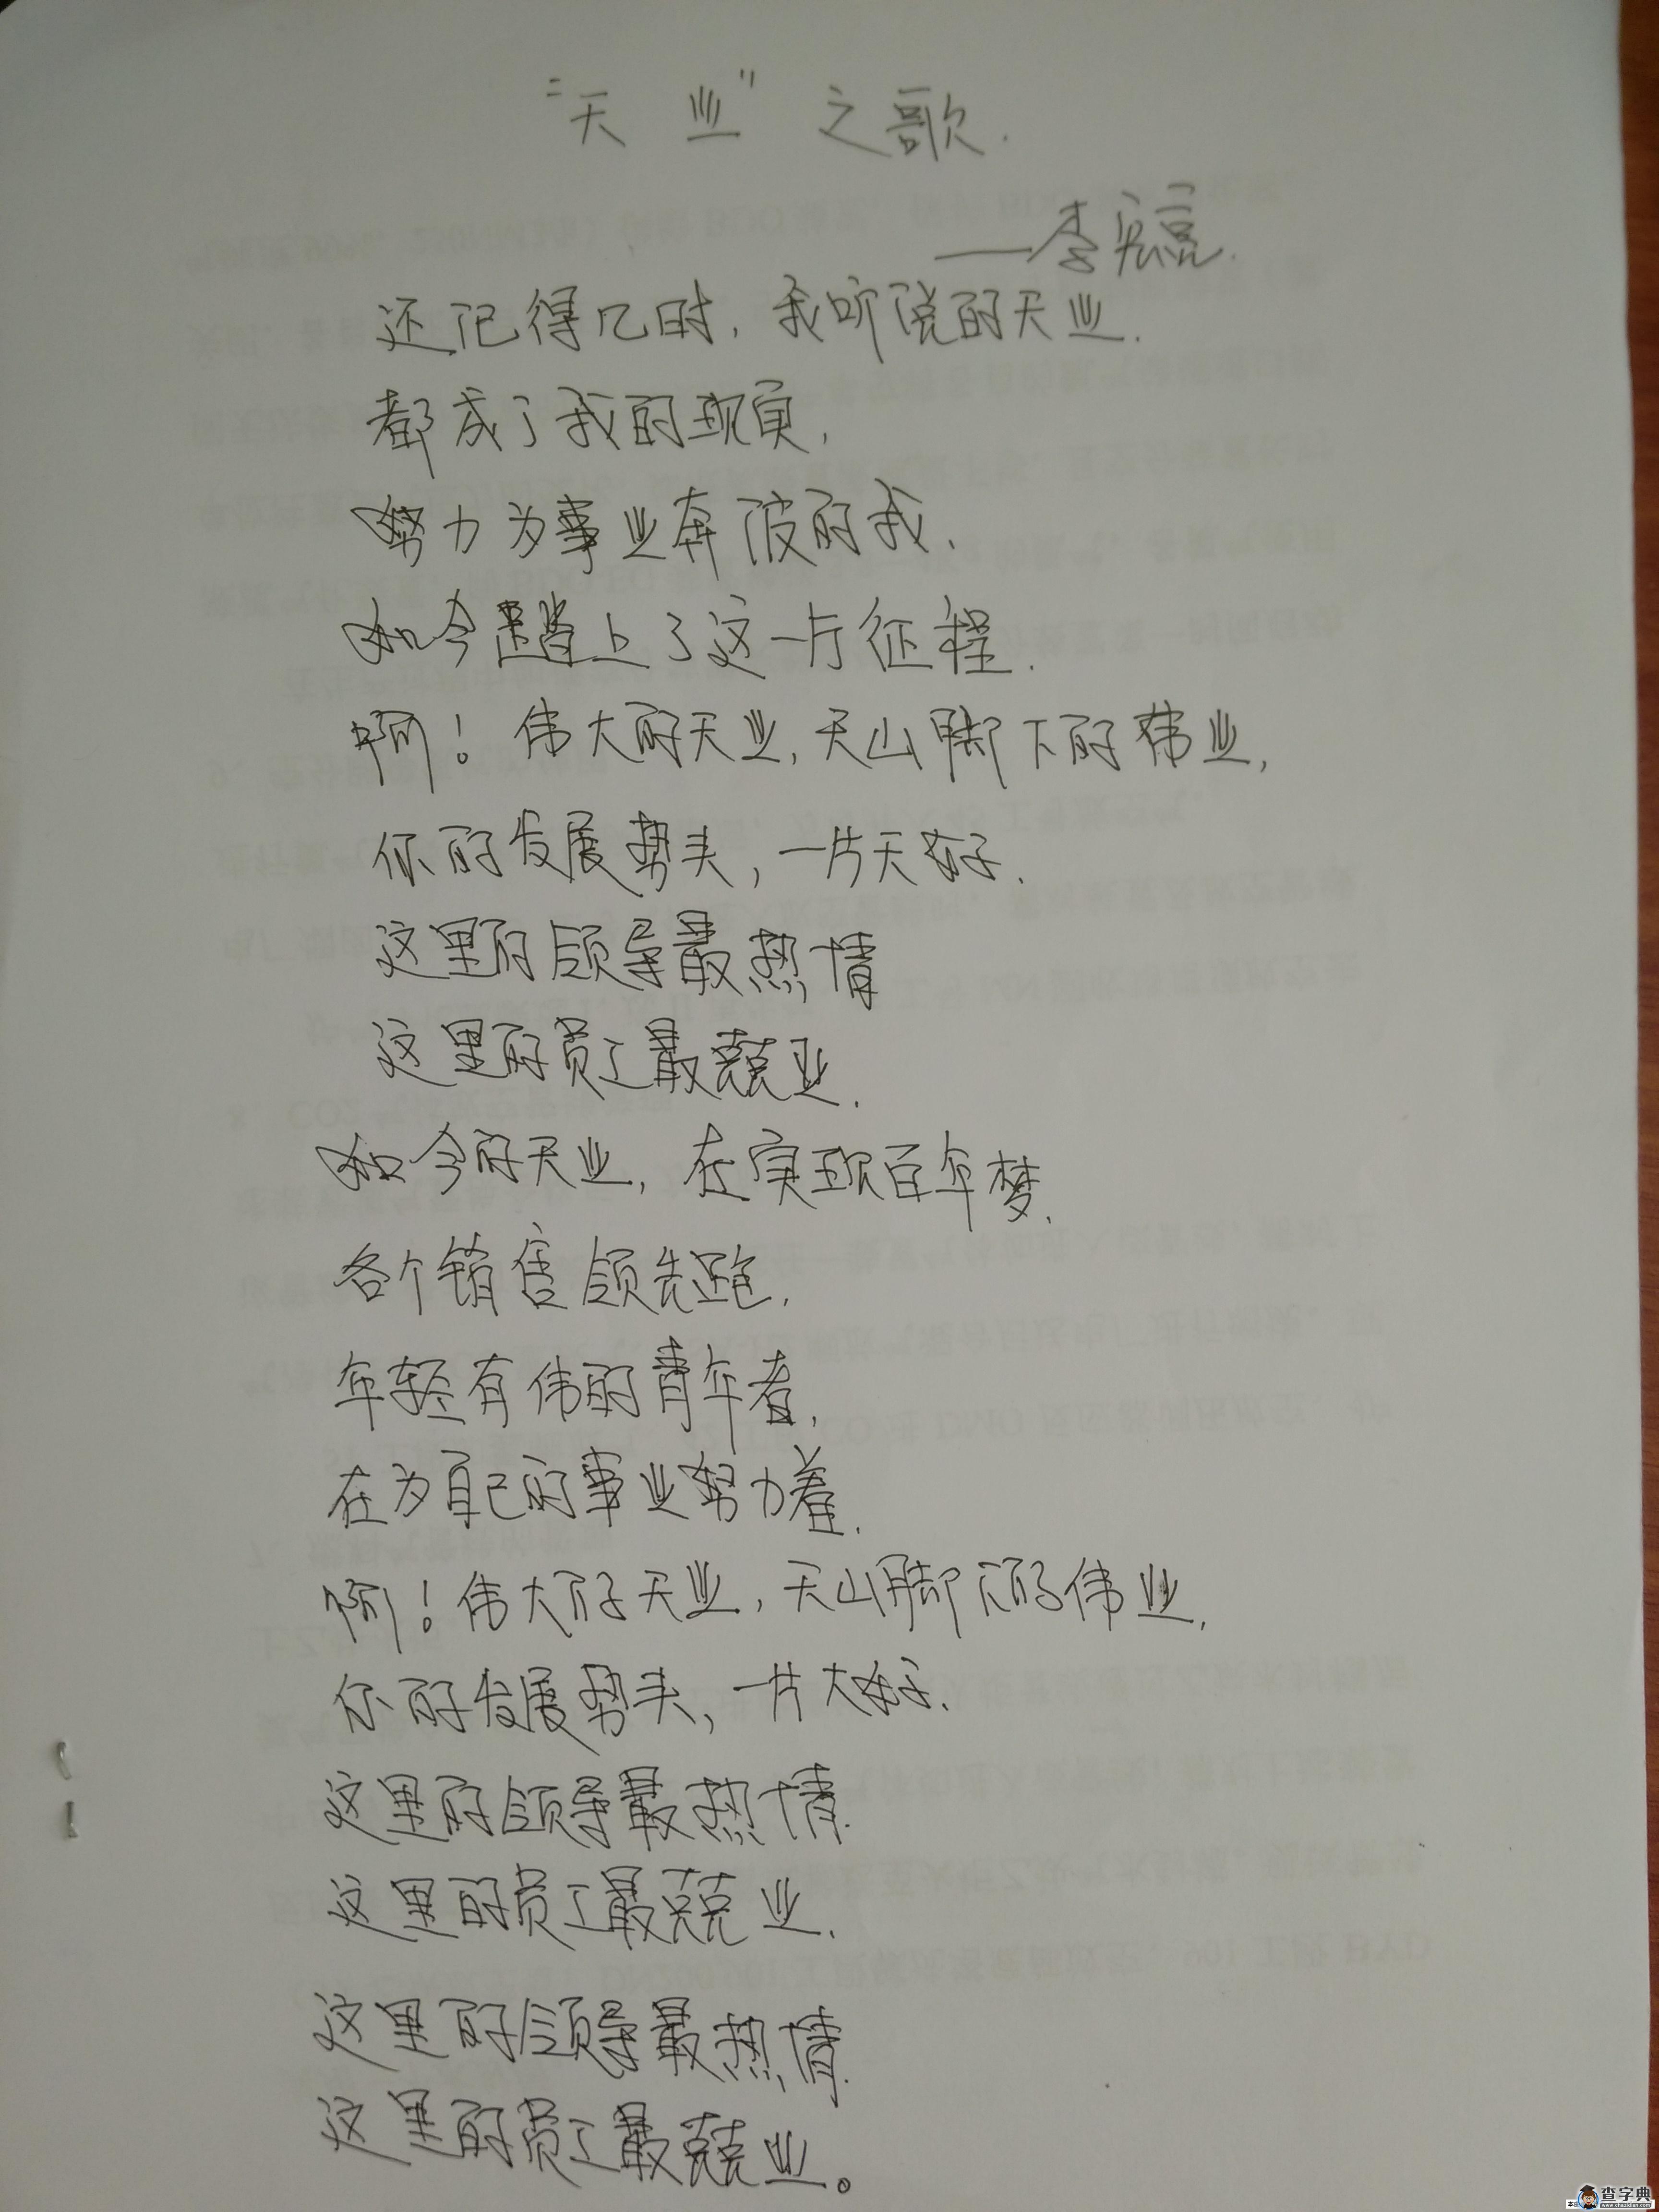 “天业”之歌.
——李宏亮.
还记得几时，我听说的天业.
都成了我的现实，
努力为事业奔波的我.
如今踏上了这一片征程.
啊！伟大的天业，天山脚下的伟业，
你的发展势头，一片大好.
这里的领导最热情
这里的员工最兢业.
如今的天业，在实现百年梦.
各个销售领先跑.
年轻有伟的青年者，
在为自己的事业努力着.
啊！伟大的天业，天山脚下的伟业.
你的发展势头，一片大好.
这里的领导最热情.
这里的员工最兢业.
这里的领导最热情.
这里的员工最兢业。
查字典
www.chazidian.com